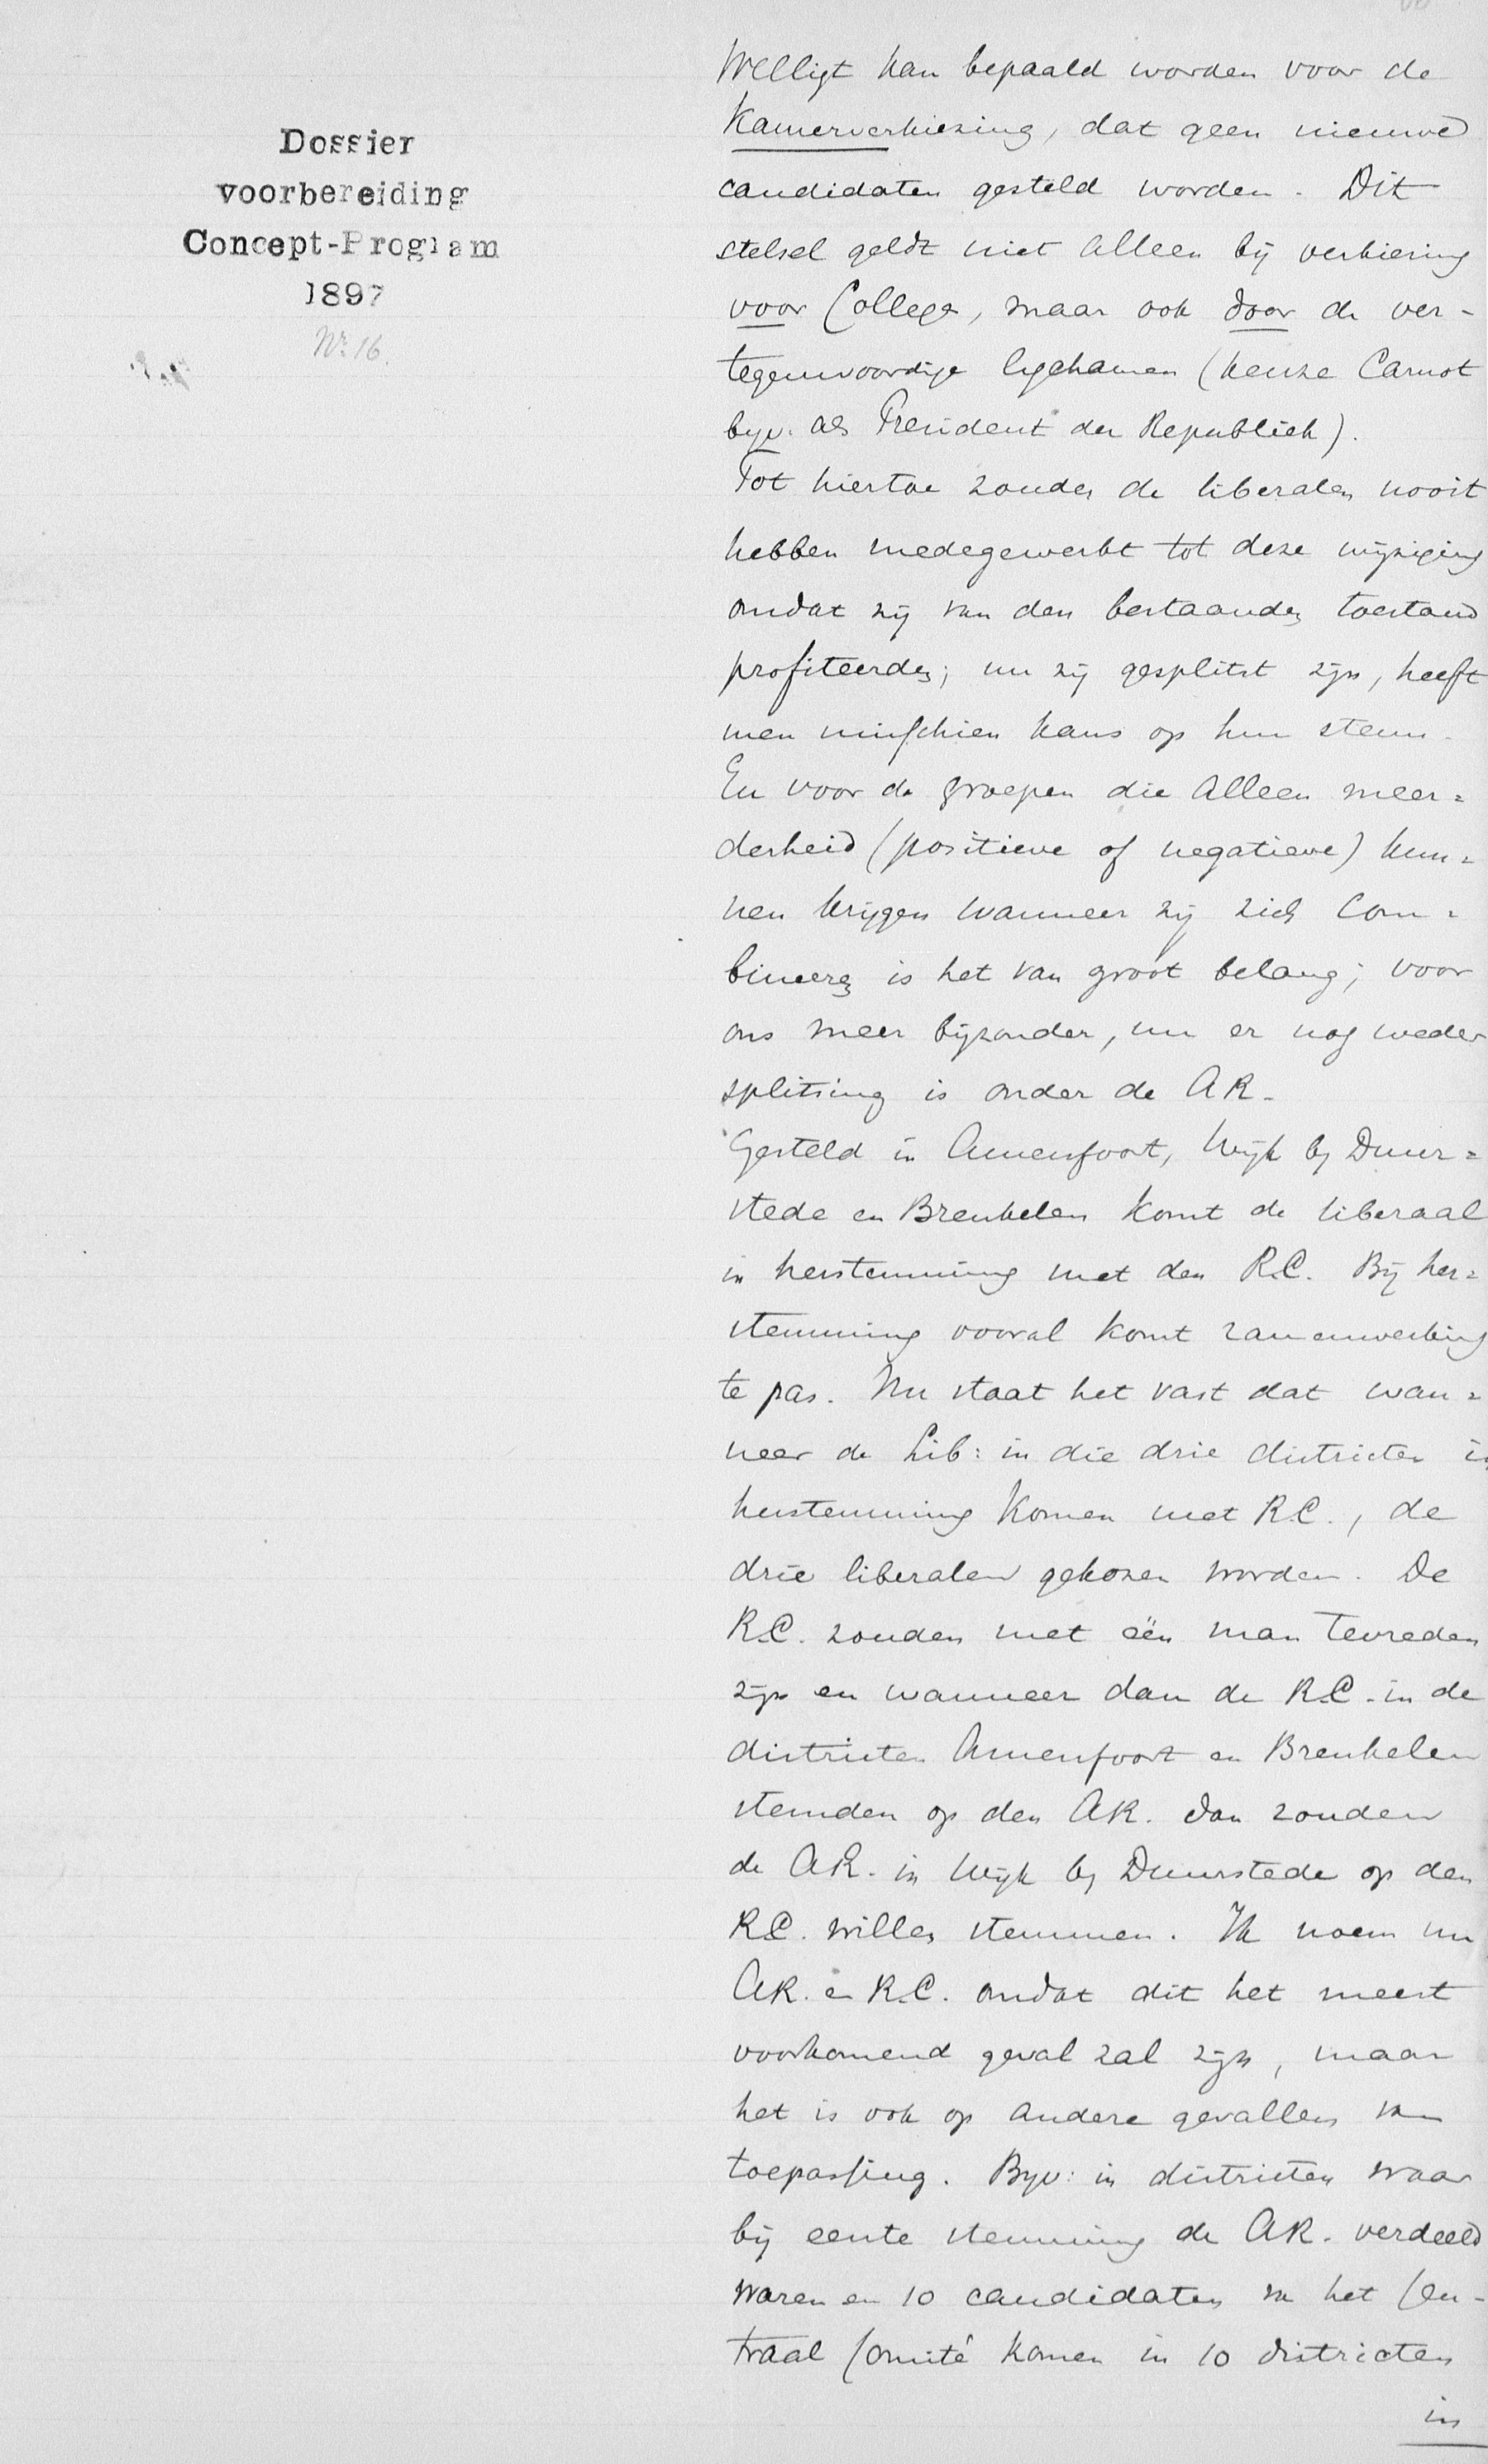 Dossier
voorbereiding
Concept-Program
1897
No. 16.
Welligt kan bepaald worden voor de
Kamerverkiezing, dat geen nieuwe
candidaten gesteld worden. Dit
stelsel geldt niet alleen bij verkiezing
voor Colleges, maar ook door de ver-
tegenwoordige ligchamen (keuze Carnot
byv. als President der Republiek).
Tot hiertoe zouden de liberalen nooit
hebben medegewerkt tot deze wijziging
omdat zij van den bestaanden toestand
profiteerden; nu zij gesplitst zijn, heeft
men misschien kans op hun steun.
En voor de groepen die alleen meer=
derheid (positieve of negatieve) kun=
nen krijgen wanneer zij zich com=
bineeren is het van groot belang; voor
ons meer bijzonder, nu er nog weder
splitsing is onder de AR.
Gesteld in Amersfoort, Wijk bij Duur=
stede en Breukelen komt de liberaal
in herstemming met den R.C. Bij her=
stemming vooral komt zamenwerking
te pas. Nu staat het vast dat wan=
neer de Lib: in die drie districten in
herstemming komen met R.C., de
drie liberalen gekozen worden. De
R.C. zouden met één man tevreden
zijn en wanneer dan de R.C. in de
districten Amersfoort en Breukelen
stemden op den AR. dan zouden
de AR. in Wijk bij Duurstede op den
R.C. willen stemmen. Ik noem nu
AR. en R.C. omdat dit het meest
voorkomend geval zal zijn, maar
het is ook op andere gevallen van
toepassing. Byv: in districten waar
bij eerste stemming de AR. verdeeld
waren en 10 candidaten van het Cen-
traal Comité komen in 10 districten
in